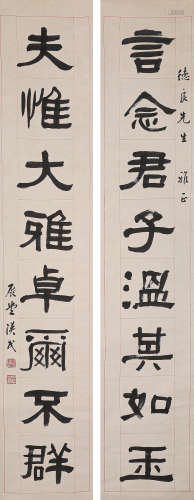 言念君子溫其如玉
德良先生 雅正
夫惟大雅卓爾不群
展堂漢民